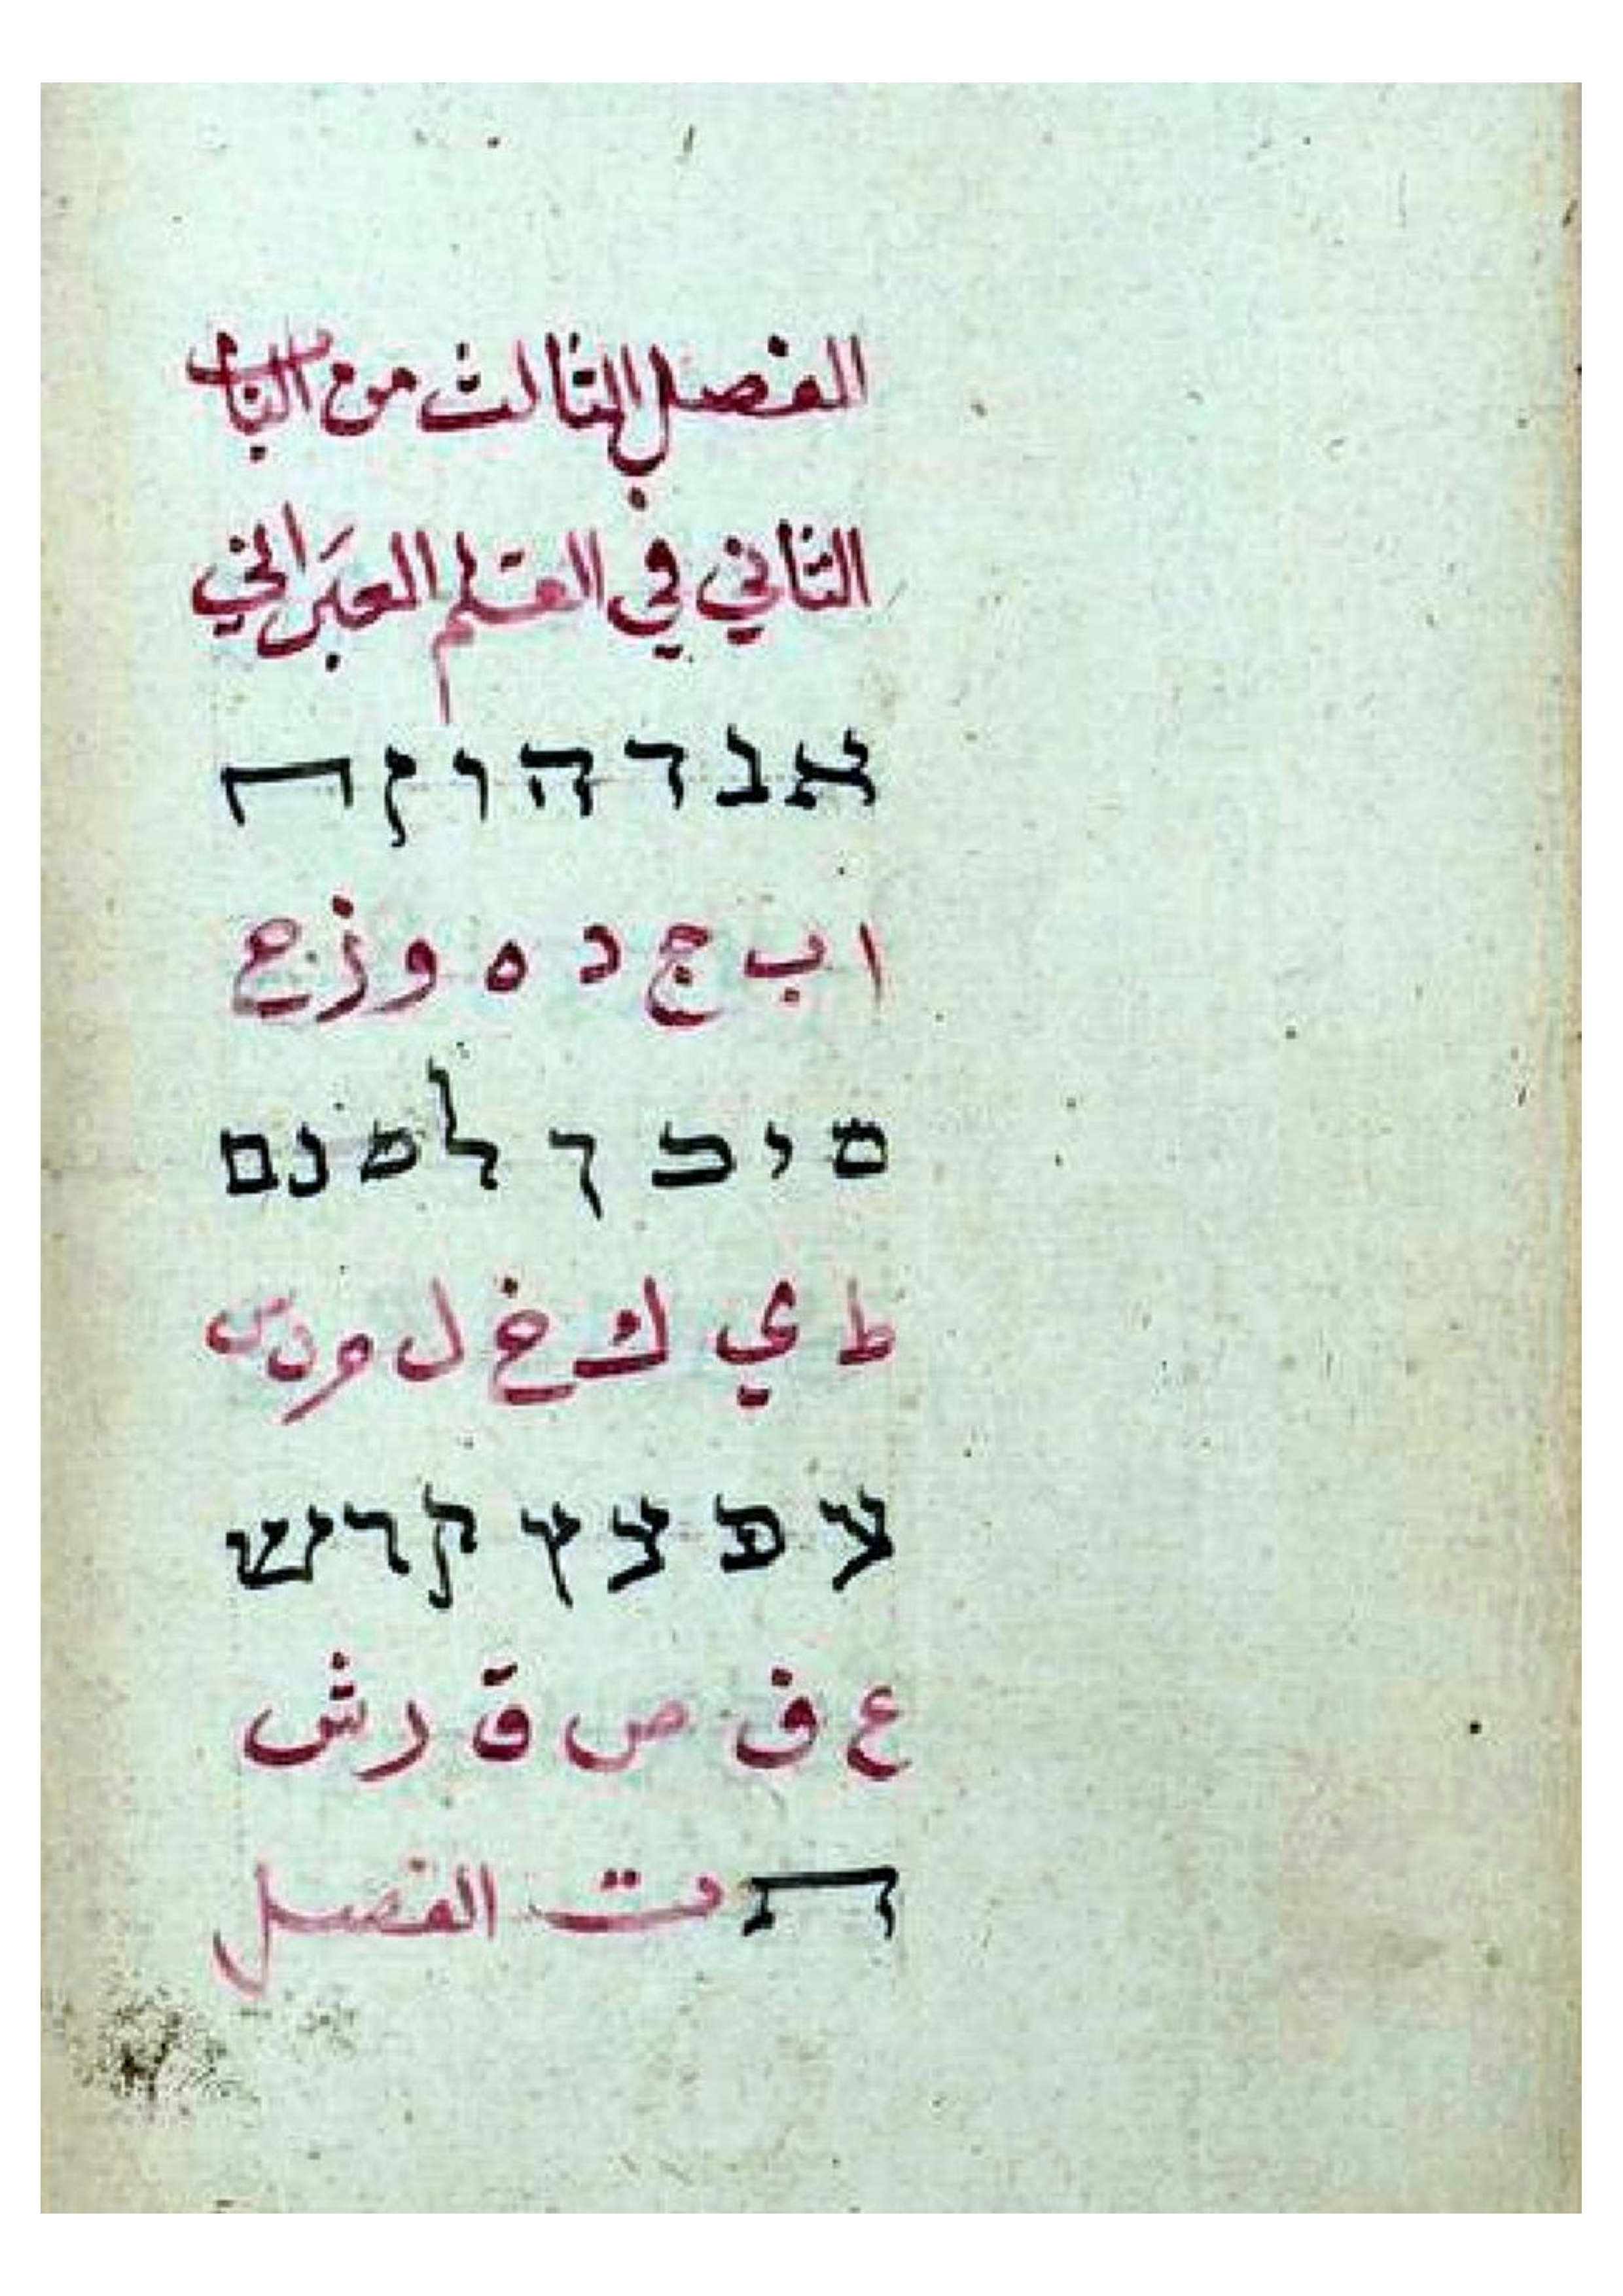 الفصل الثالث من الباب
الثاني في القلم العبراني
א ב ד ה ו ז ח
ا ب ج د ه و ز ح
ט י כ ך ל מ נ ם
ط ي ك خ ل م ن س
ע פ צ ץ ק ר ש
ع ف ص ق ر ش
ת ت الفصل